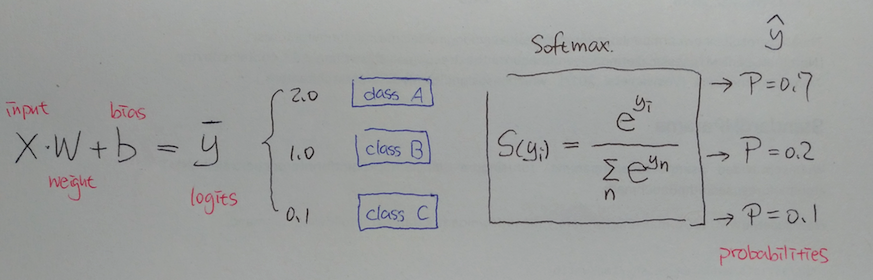 Softmax. ŷ
input bias
X·W + b = ȳ
weight logits
2.0 class A
1.0 class B
0.1 class C
S(yi) = e^yi / Σn e^yn
→ P=0.7
→ P=0.2
→ P=0.1
probabilities